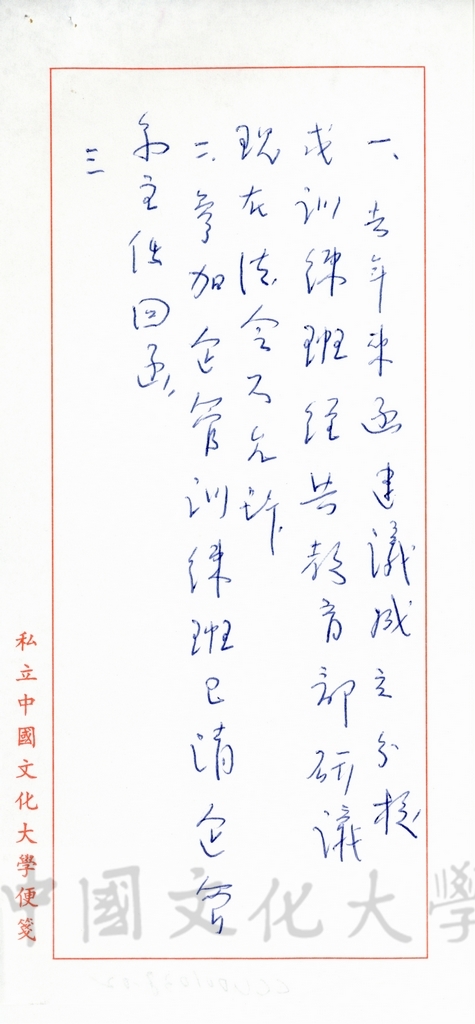 一、去年來函建議成立分校
或訓練班經與教育部研議
現在法令不允許
二、參加企管訓練班已請企管
系主任回函，
三
私立中國文化大學便箋
中國文化大學